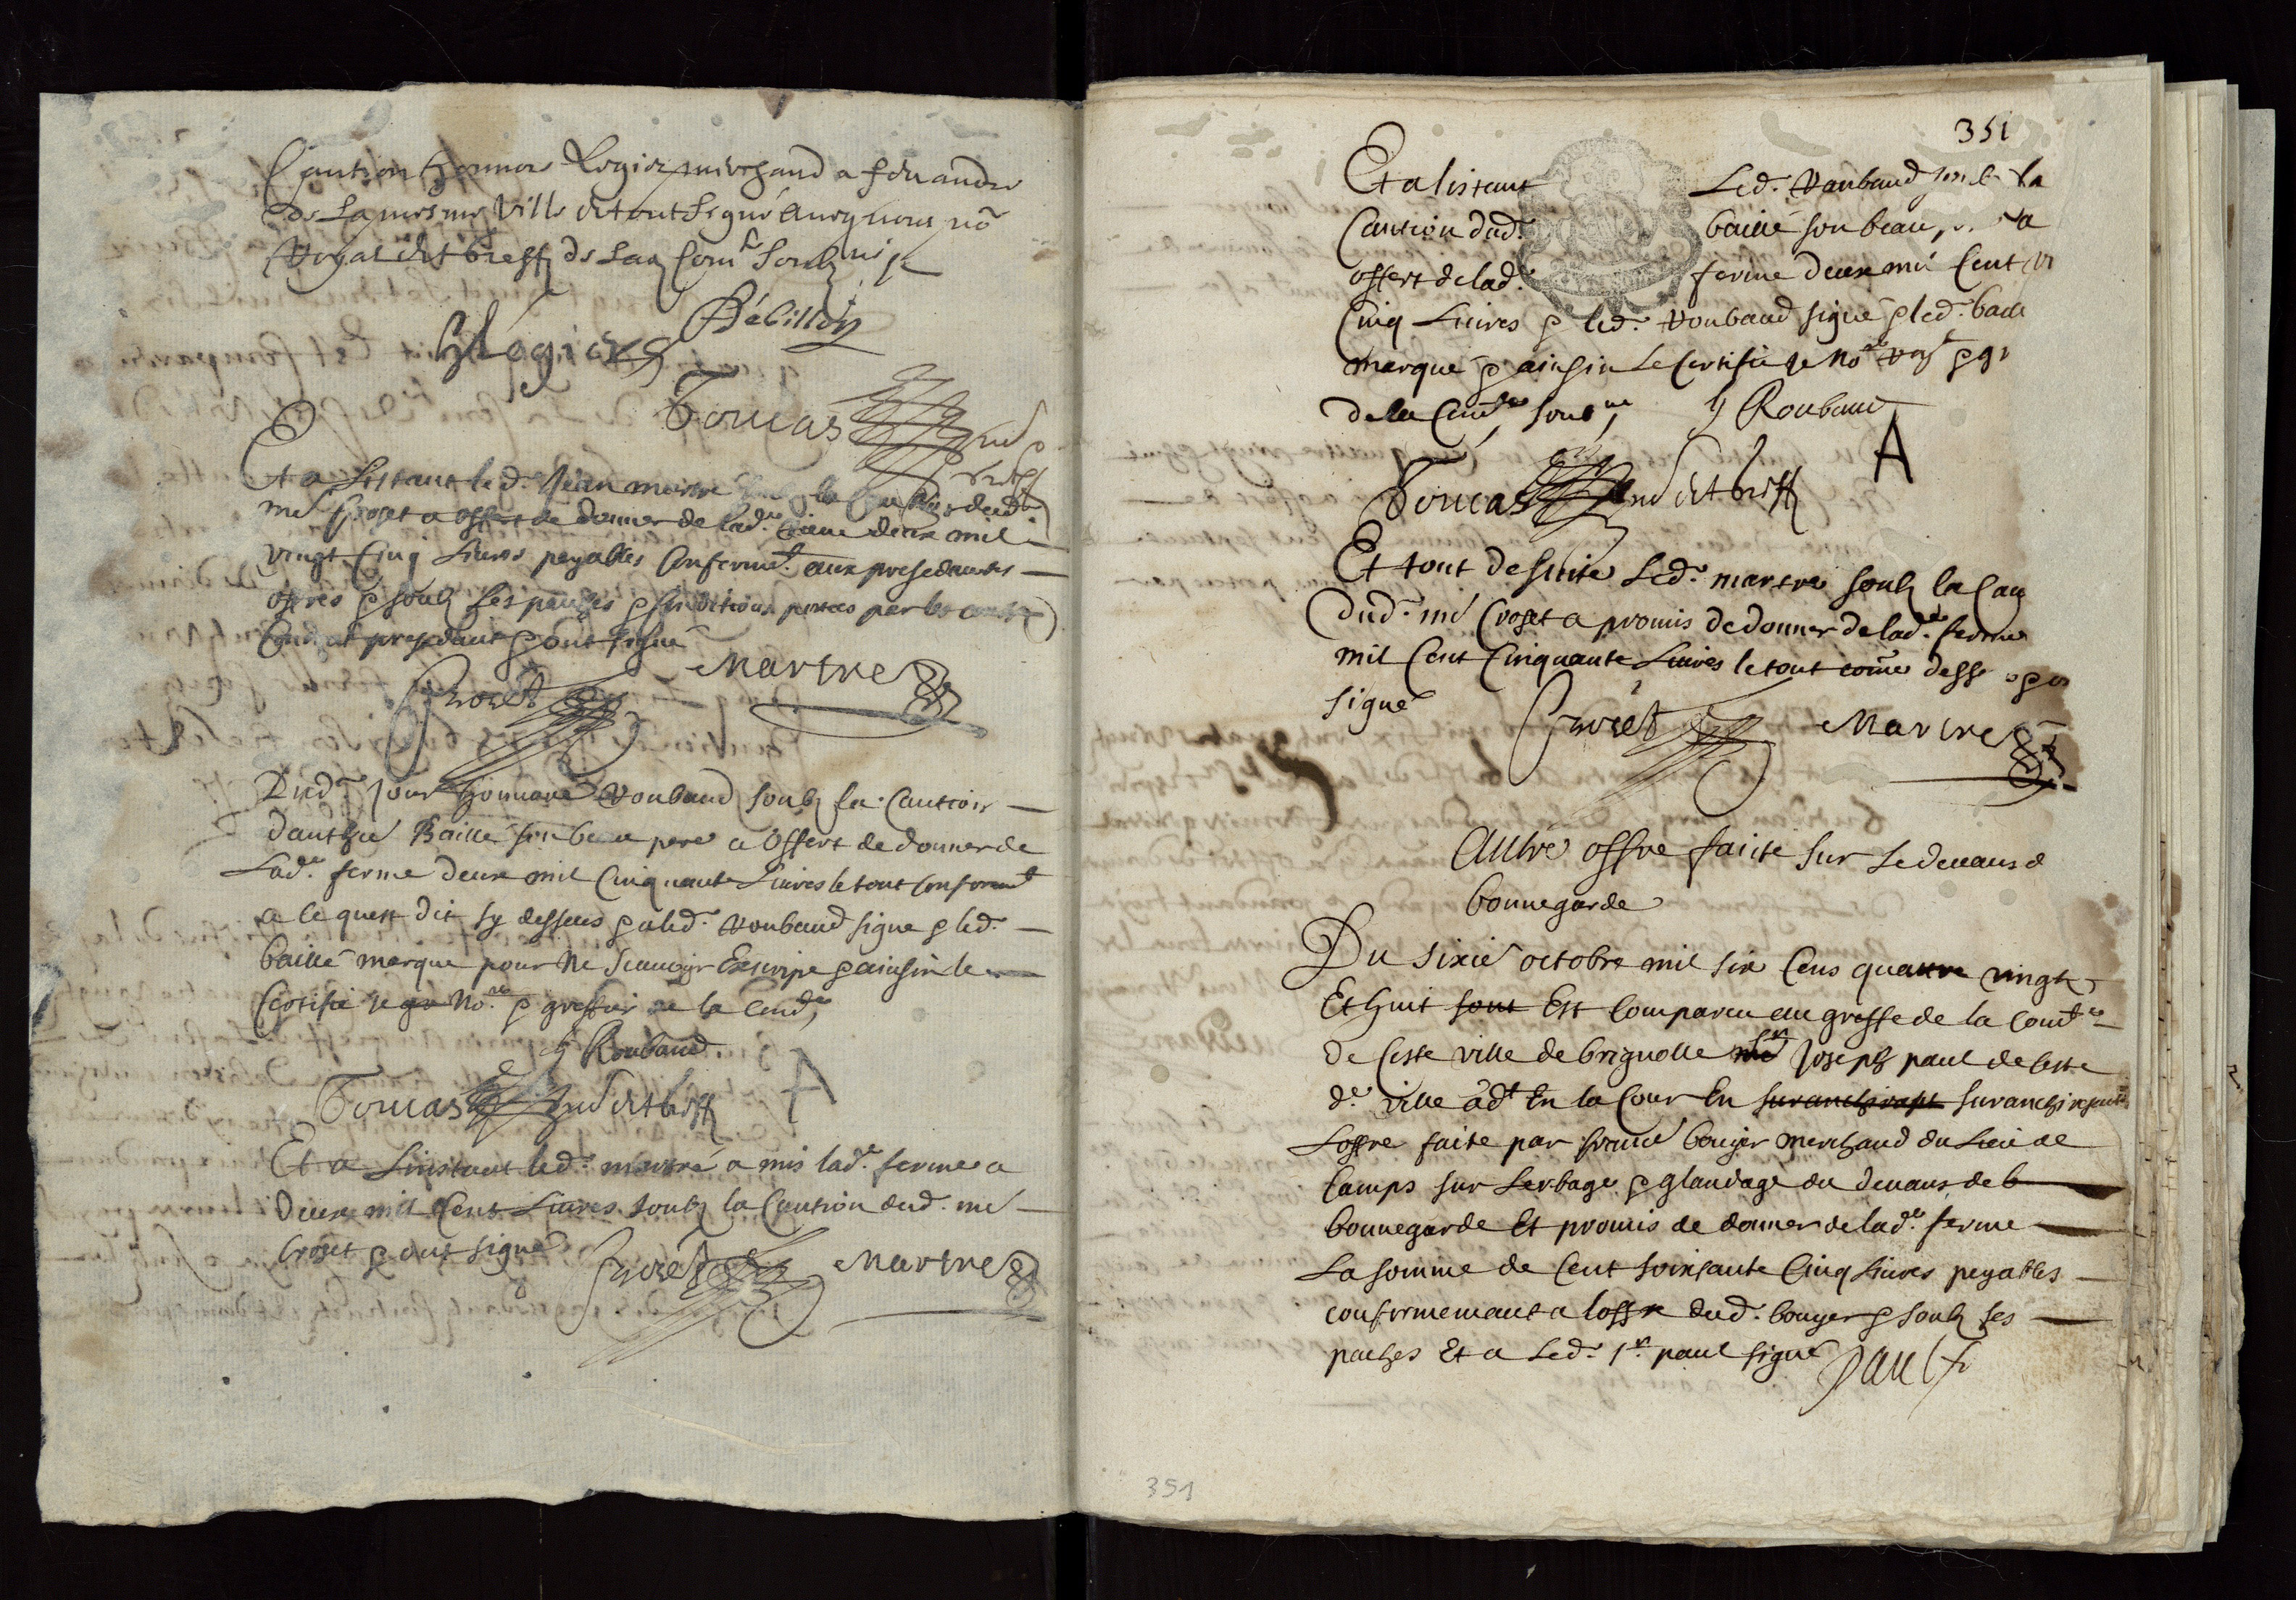 Caution honnore Legier marchand a
de la mesme Ville et tout signé avec nous nore
Royal et greff de lad Comte soubzne
HLegier Rébillon
Toucas
Et a listant led. Jean martre la Caution dud.
me Croset a offert de donner de lade. deux mil
vingt Cinq livres payables Conformt. aux presedantes
offres & soubz les paches & Conditions
presedant & ont signé
Croset Martre
Dud. jour honnoré Roubaud soubz la Caution
dauthié Baille son beau pere a offert de donner de
Lade. ferme deux mil Cinquante Livres le tout Conformt
a ce quest dit sy dessus & a led. Roubaud signe & led.
baille marque pour ne scauoyr Escripre & ainsin le
Certifie je No.re & greffier de la Comté
h Roubaud.
Toucas no et greff
A
Et a Linstant led. martre a mis lade. ferme a
Deux mil Cent Livres soubz la Caution dud. me
Croset & ont signé
Croset Martre
351
Et a listant Led. Roubaud soubz la
Caution dud. baille son beau p. a
offert de lad. ferme deux mil Cent
Cinq Livres & led. Roubaud signe & led.
marque & ainsin le Certifie je Nore Roy &
de la Comté soubne h Roubaud
A
Toucas no et greff
Et tout de suite Led. martre soubz la Cau
dud. me Croset a promis de donner de lade. ferme
mil Cent Cinquante Livres le tout come dess
signé
Croset Martre
Autre offre faite sur Le deuans de
bonnegarde
Du sixie octobre mil six Cens quattre vingt
Et huit sont Est Comparu au greffe de la Comté
de Ceste ville de brignolle me sr Joseph paul de ceste
de. ville adt En la Cour En suranchirant suranchirant
Loffre faite par bouyer marchand du Lieu de
Camps sur Lerbage & glandage du deuans de b
bonnegarde Et promis de donner de lade. ferme
La somme de Cent soixante Cinq Livres payables
conformemant a loffre dud. bouyer & soubz ses
paches Et a Led. sr. paul signé Paul
351